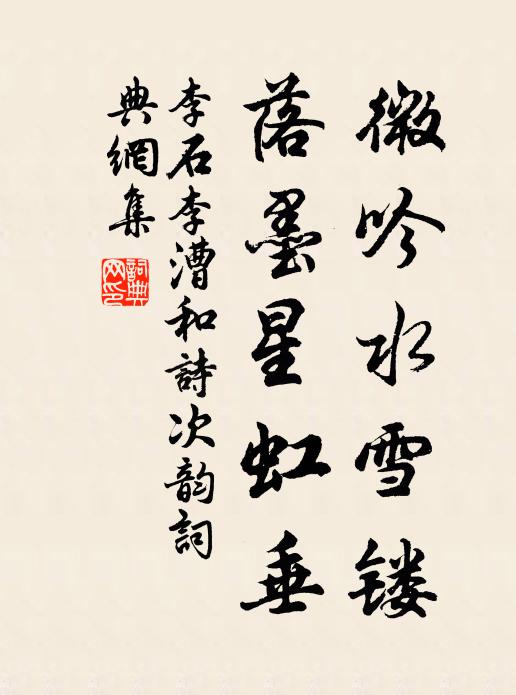 微吟水雪镂
落墨星虹垂
李石李漕和詩次韵詞
典網集
詞典网印